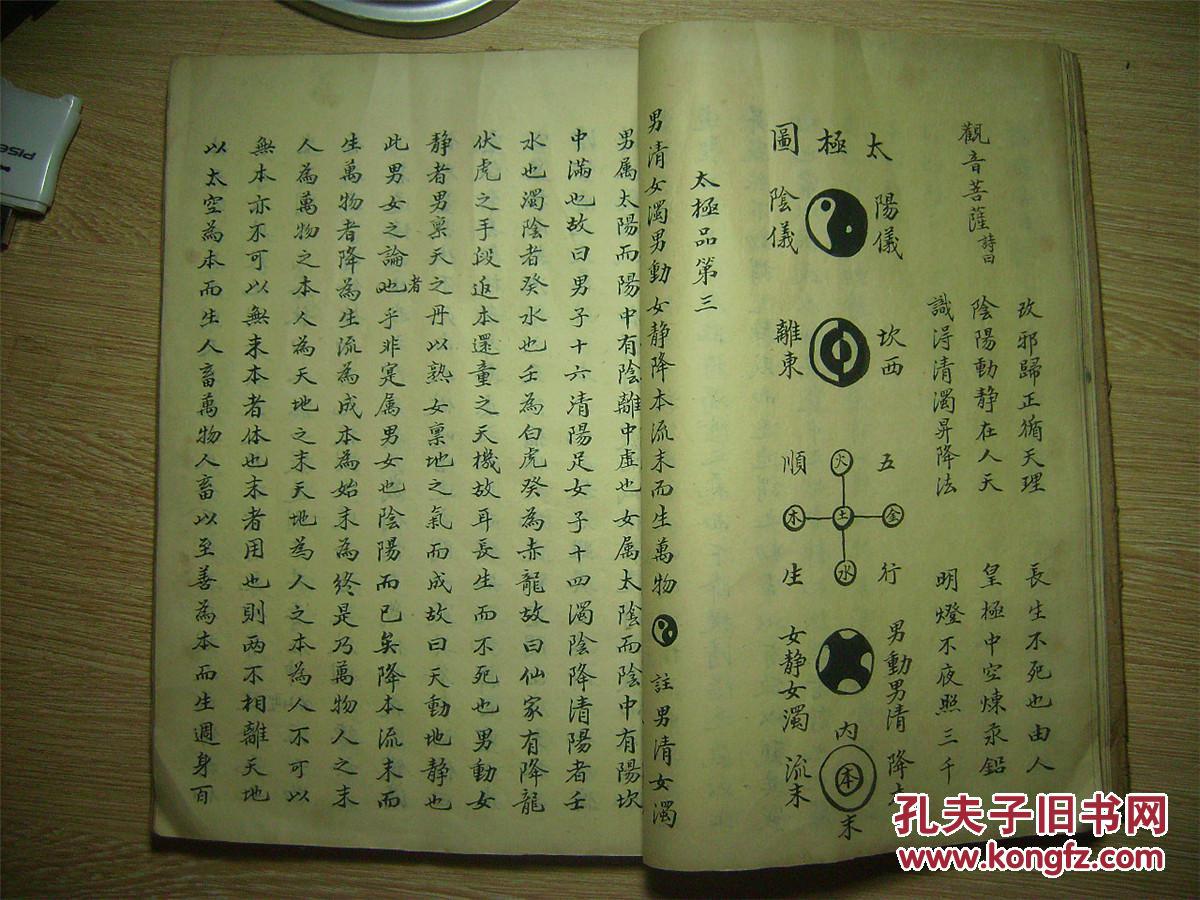 觀音菩薩詩曰
改邪歸正循天理　長生不死也由人
陰陽動靜在人天　皇極中空煉汞鉛
識得清濁昇降法　明燈不夜照三千
太極圖
陽儀
陰儀
坎西
離東
五行
順生
火
木 土 金
水
男動男清 降
女静女濁 流末
内
本
末
太極品第三
男清女濁男動女静降本流末而生萬物 註男清女濁
男属太陽而陽中有陰離中虚也女属太陰而陰中有陽坎
中滿也故曰男子十六清陽足女子十四濁陰降清陽者壬
水也濁陰者癸水也壬為白虎癸為赤龍故曰仙家有降龍
伏虎之手段返本還童之天機故耳長生而不死也男動女
静者男禀天之丹以熟女禀地之氣而成故曰天動地静也
此男女之論者也乎非寔属男女也陰陽而已矣降本流末而
生萬物者降為生流為成本為始末為終是乃萬物人之末
人為萬物之本人為天地之末天地為人之本為人不可以
無本亦不可以無末本者体也末者用也則兩不相離天地
以太空為本而生人畜萬物人畜以至善為本而生週身百
PISEN
孔夫子旧书网
www.kongfz.com